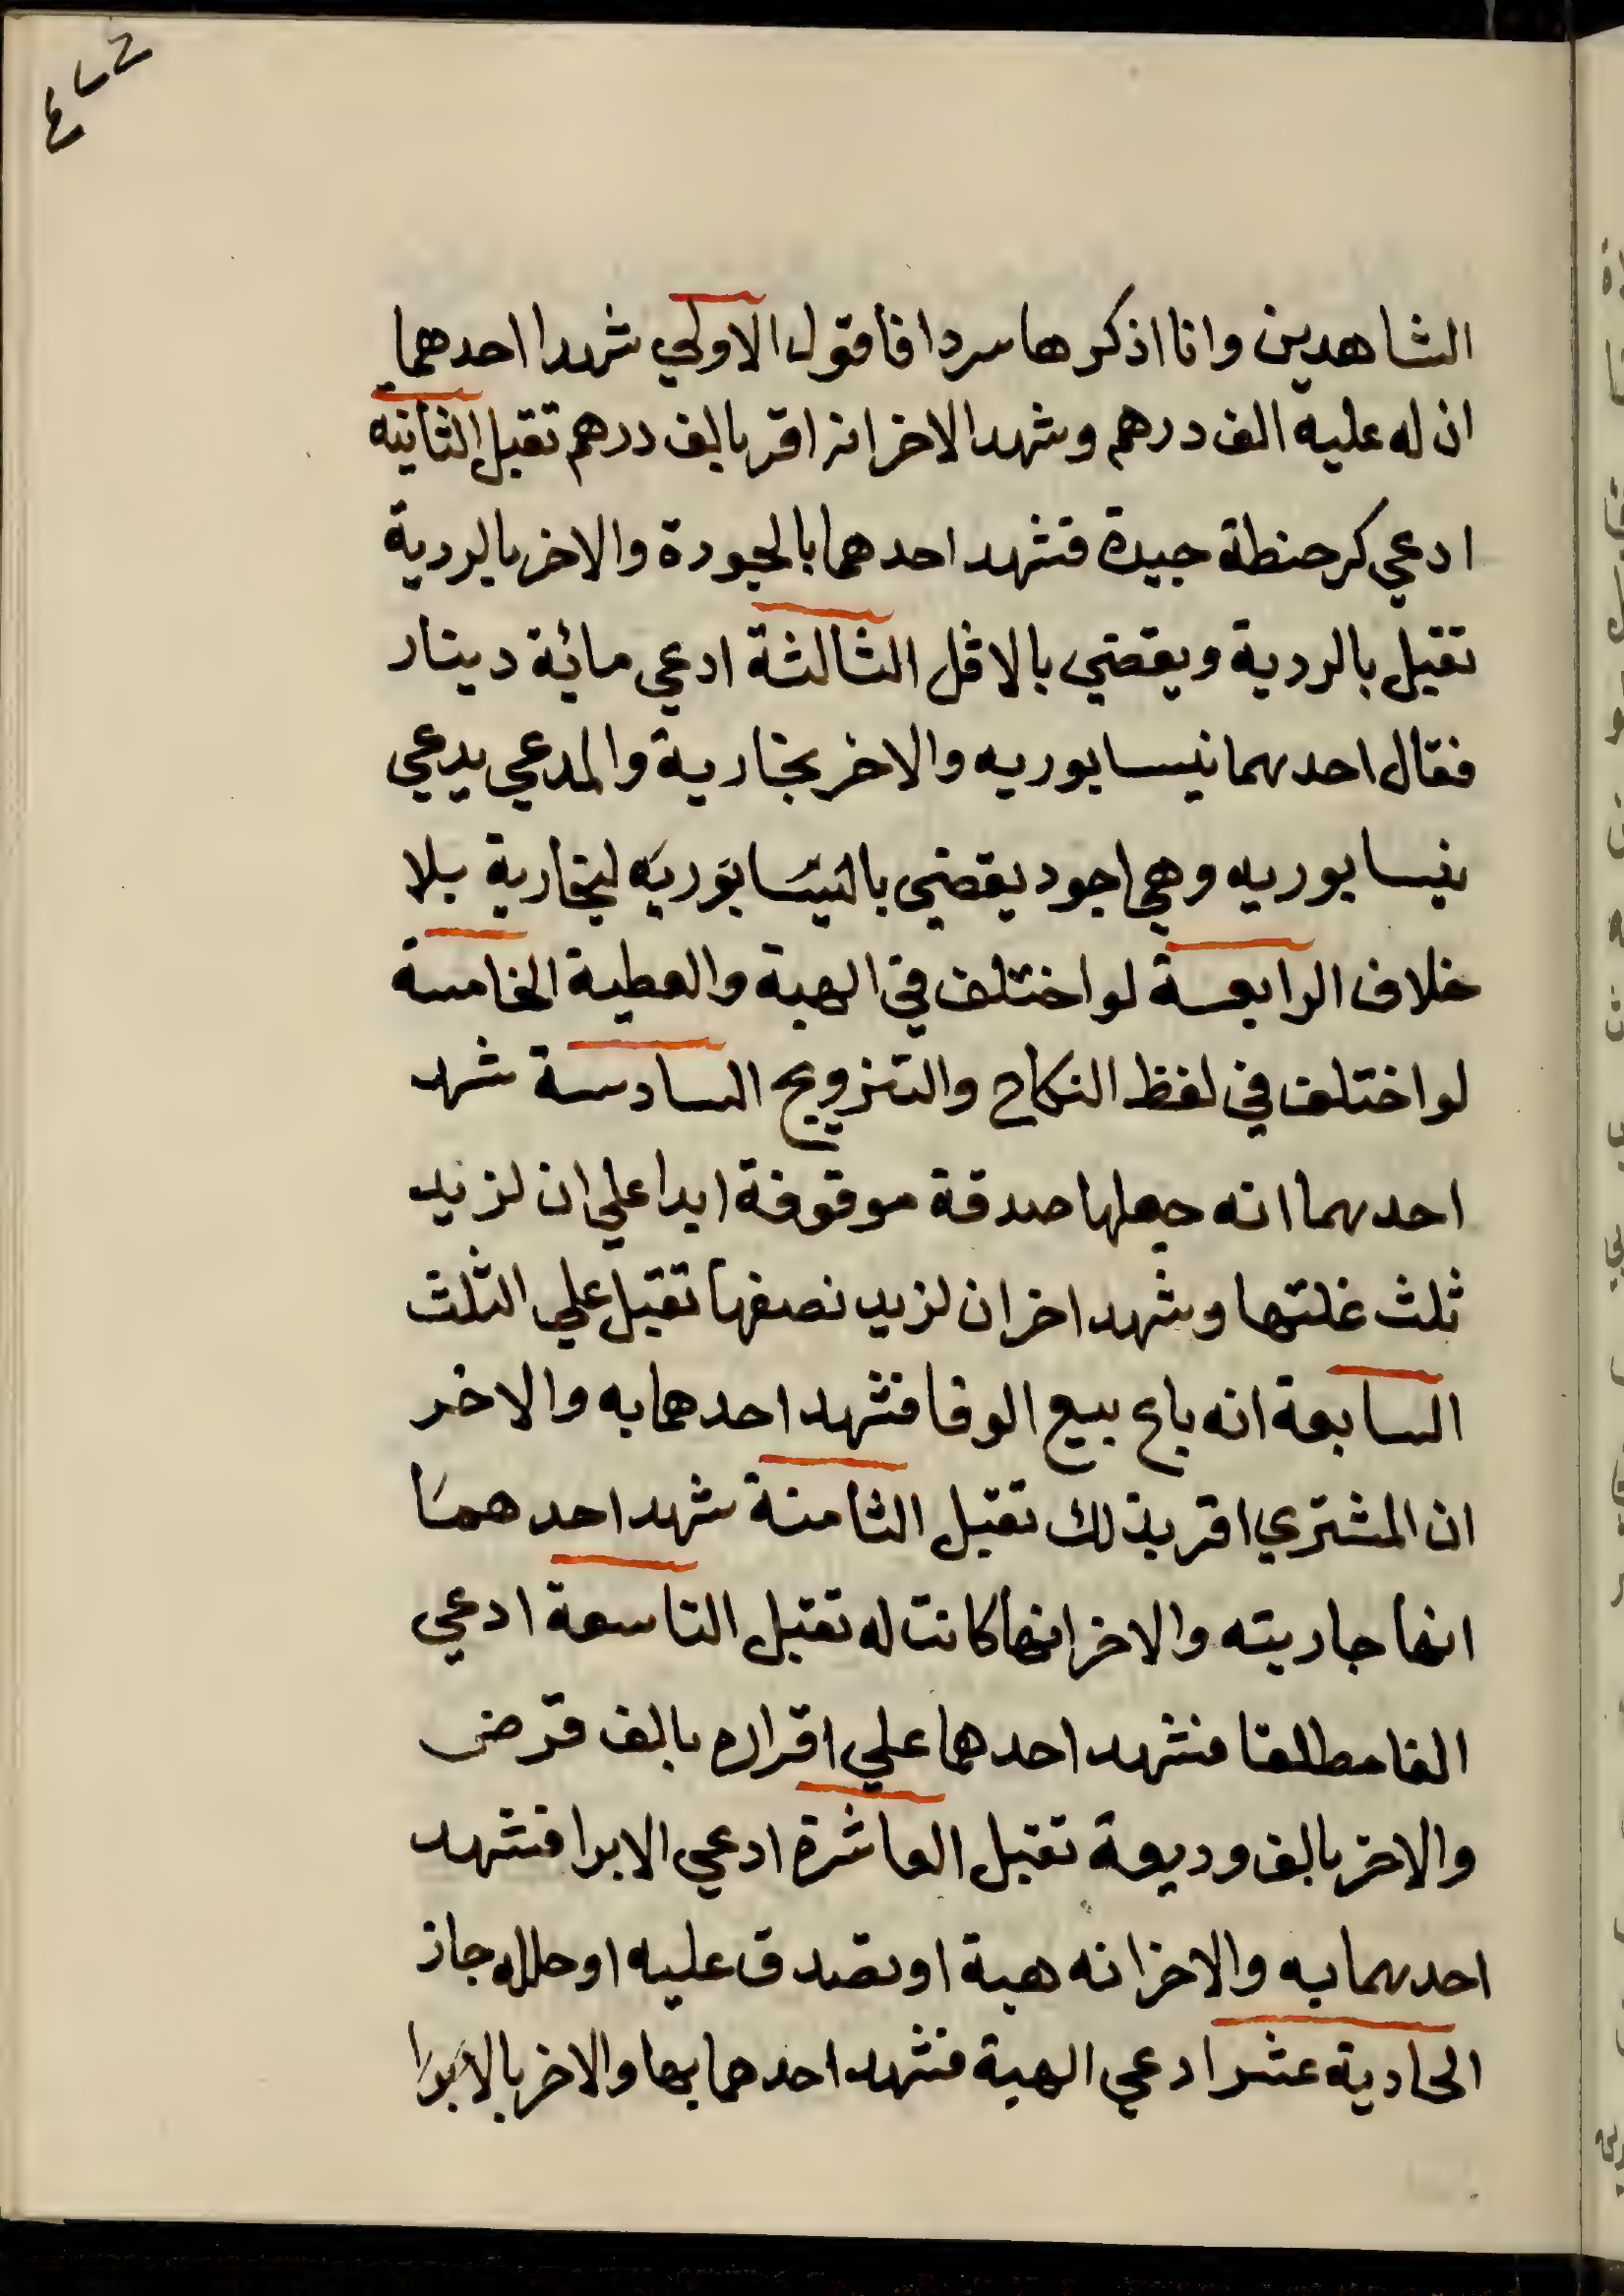 الشاهدين وانا اذكرها سردا فأقول الاولي شهدا احدهما
ان له عليه الف درهم وشهد الاخر انه اقر بالف درهم تقبل الثانيه
ادعي كر حنطة جيدة فشهد احدهما بالجودة والاخر بالردية
تقبل بالردية ويقضي بالاقل الثالثة ادعي مائة دينار
فقال احدهما نيسابوريه والاخر بخارية والمدعي يدعي
نيسابوريه وهي اجود يقضي بالنيسابوريه لبخارية بلا
خلاف الرابعة لو اختلف في الهبة والعطية الخامسة
لو اختلف في لفظ النكاح والتزويج السادسة شهد
احدهما انه جعلها صدقة موقوفة ابدا علي ان لزيد
ثلث غلتها وشهد اخر ان لزيد نصفها تقبل علي الثلث
السابعة انه باع بيع الوفا فشهد احدهما به والاخر
ان المشتري اقر بذلك تقبل الثامنة شهد احدهما
انها جاريته والاخر انها كانت له تقبل التاسعة ادعي
الفا مطلقا فشهد احدهما علي اقراره بالف قرض
والاخر بالف وديعة تقبل العاشرة ادعي الابرا فشهد
احدهما به والاخر انه هبة او تصدق عليه او حلله جاز
الحادية عشر ادعي الهبة فشهد احدهما بها والاخر بالابرا